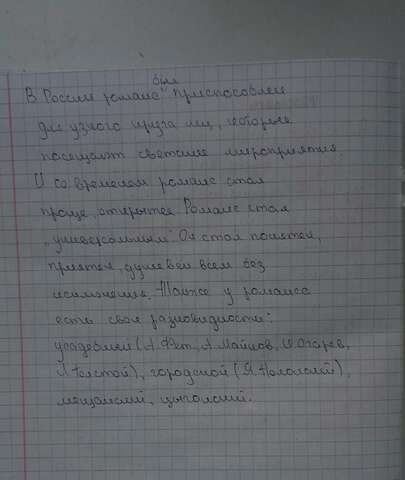 был
В России романс приспособлен
для узкого круга лиц, которые
посещают светские мероприятия.
И со временем романс стал
проще, открытее. Романс стал
"универсальным". Он стал понятен,
приятен, душевен всем без
исключения. Также у романса
есть свои разновидности:
усадебный (А. Фет, А. Майков, Огарев,
Толстой), городской (Я. Полонский),
мещанский, цыганский.